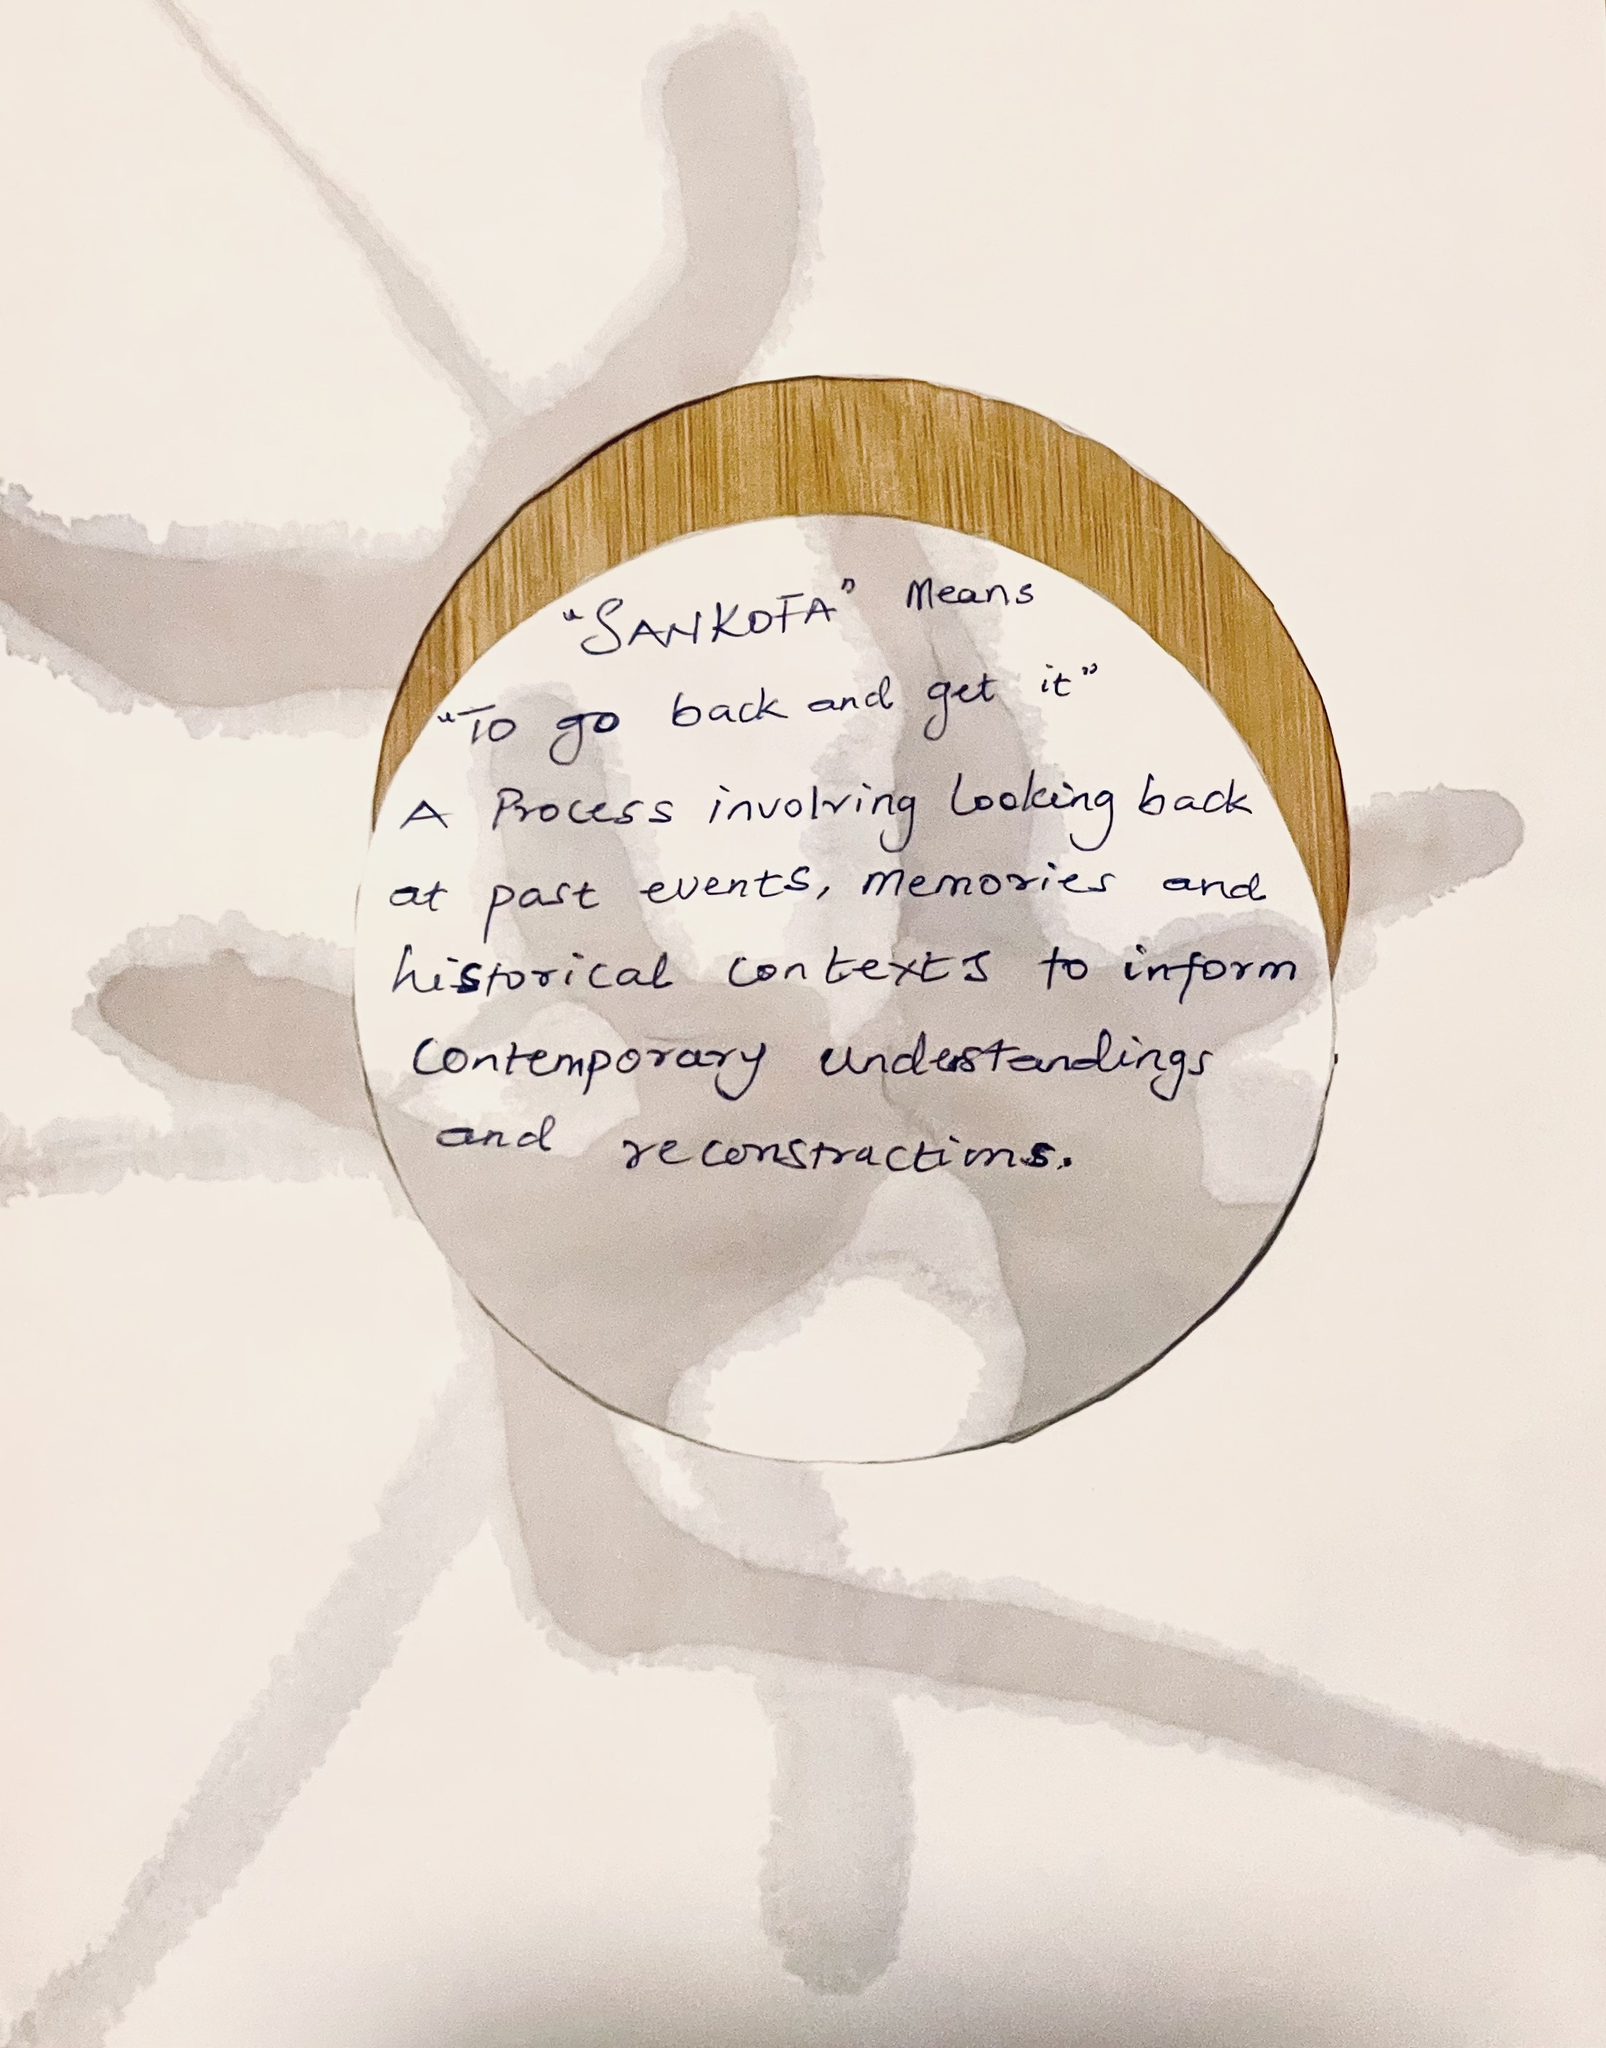 "SANKOFA" Means
"To go back and get it"
A Process involving Looking back
at past events, memories and
historical contexts to inform
contemporary understandings
and reconstractions.